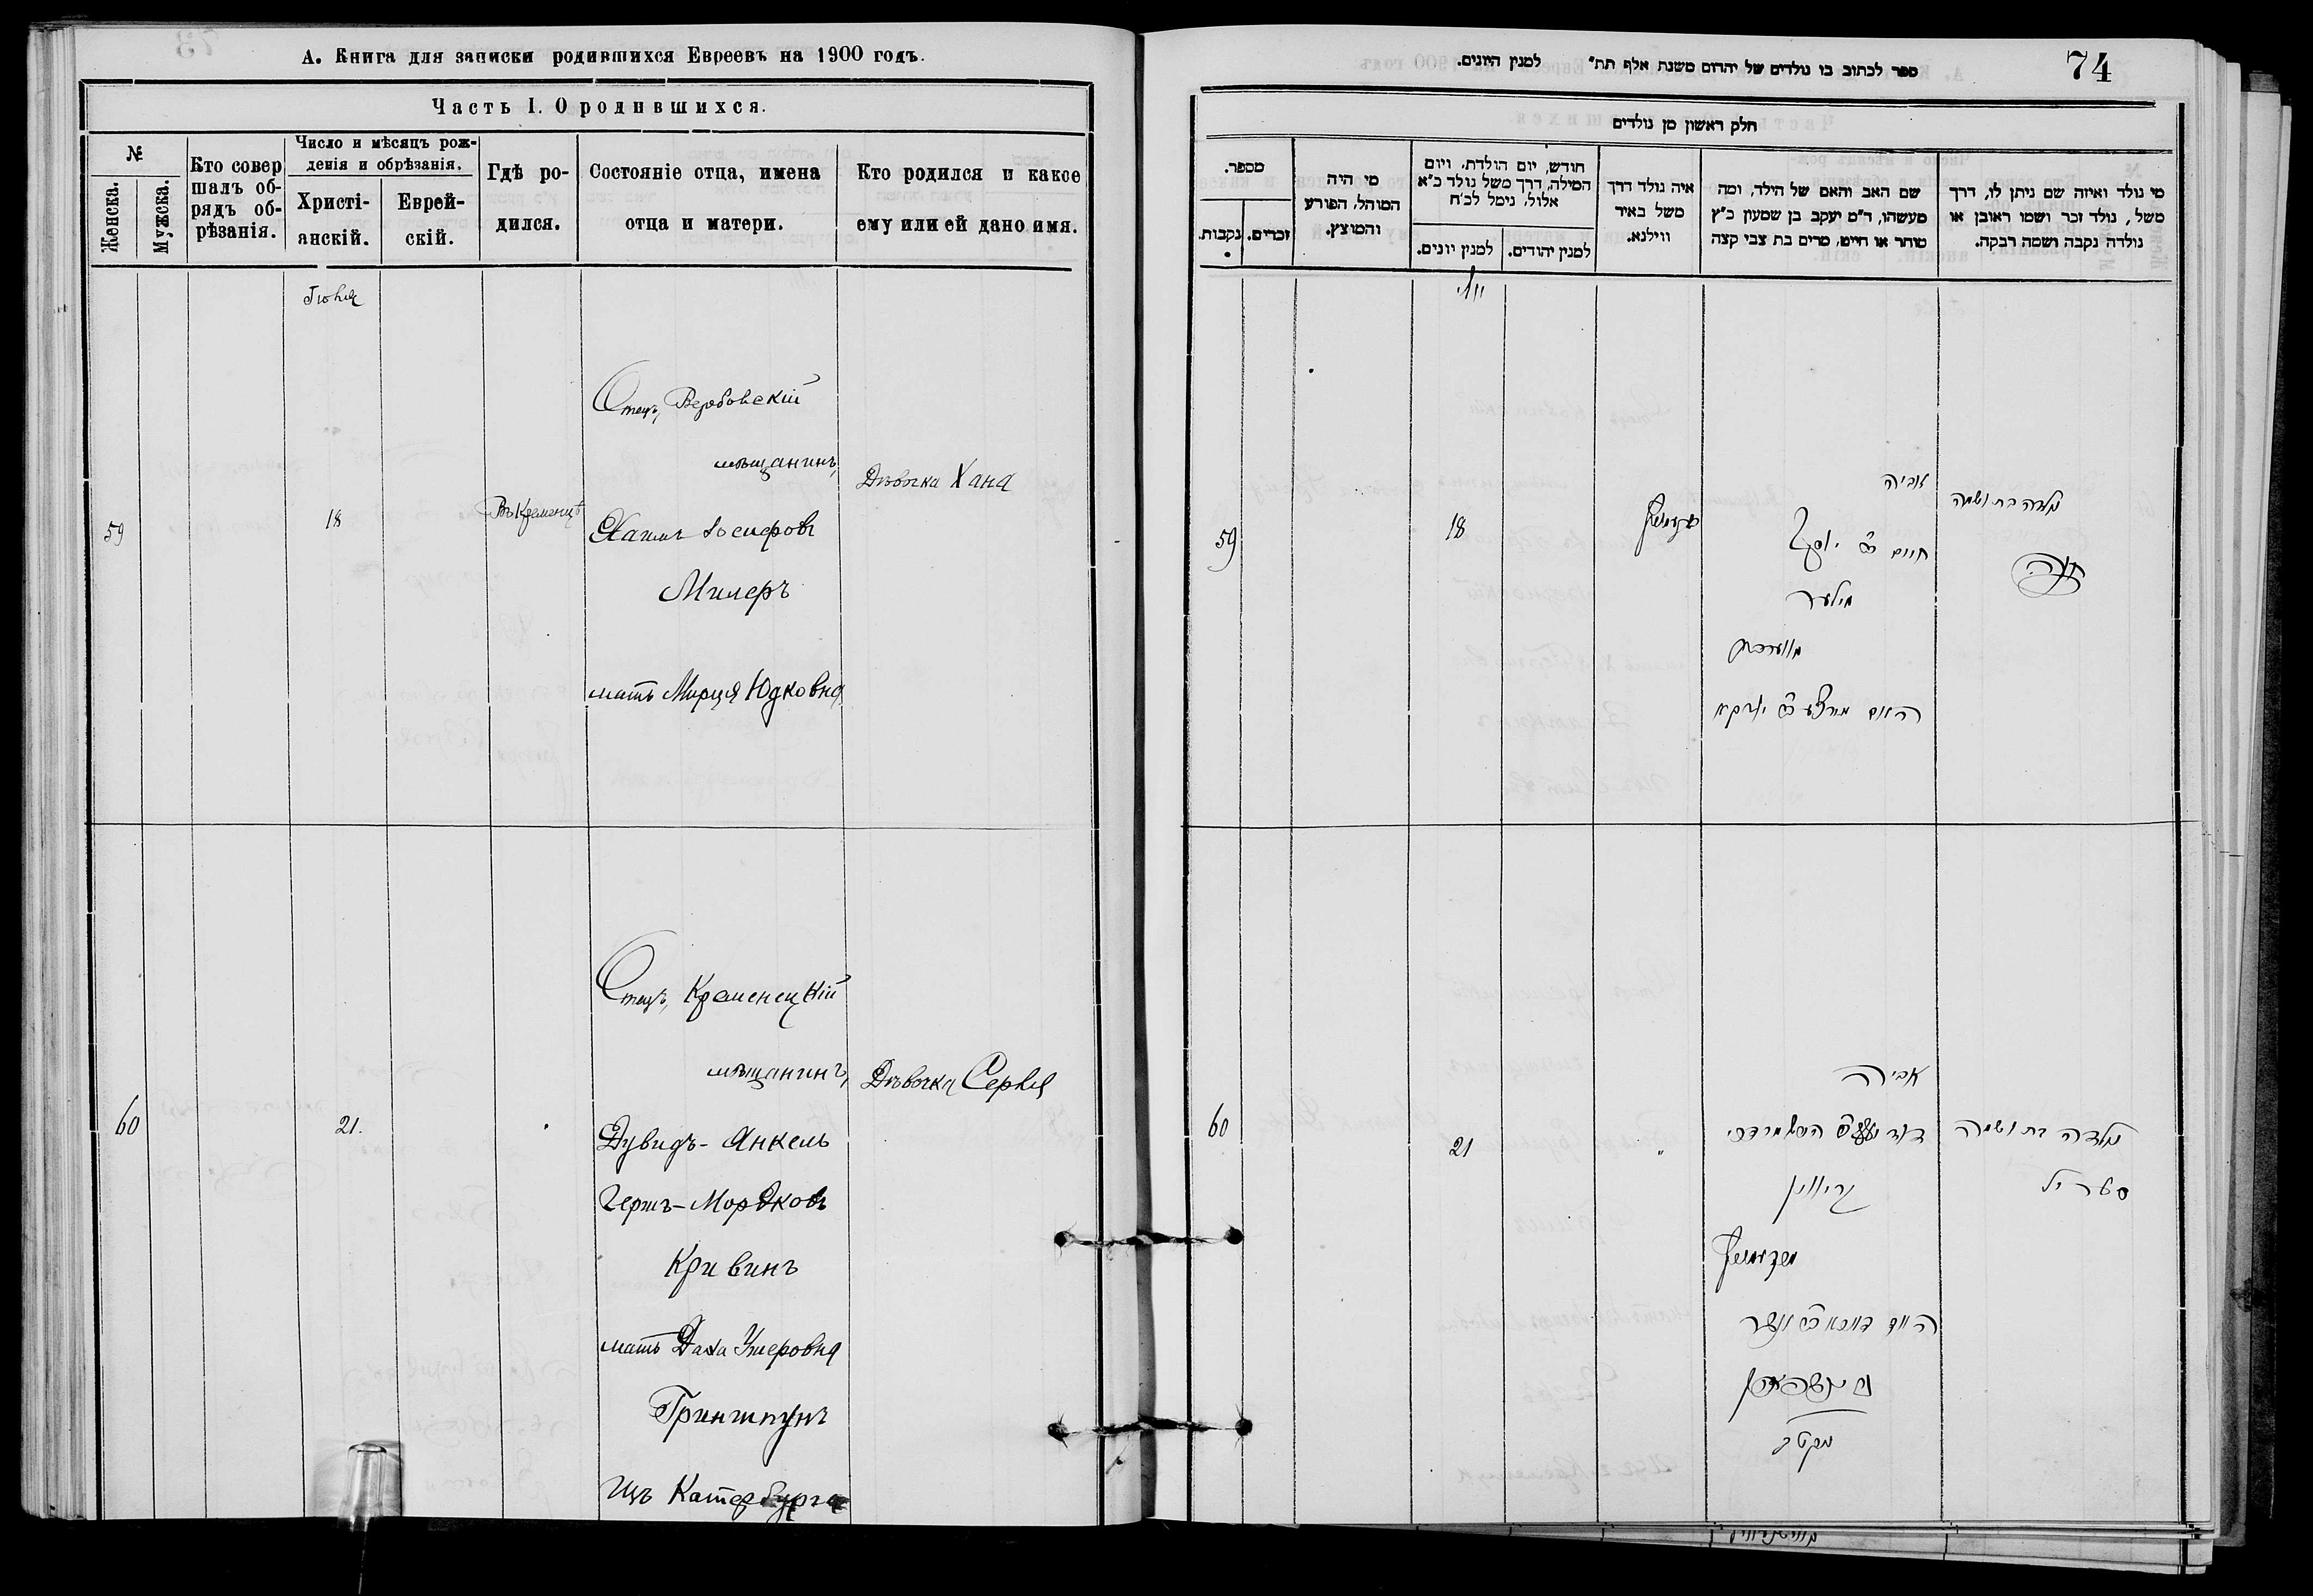 А. Книга для записки родившихся Евреевъ на 1900 годъ.
Часть I. О родившихся.
№
Женска.
Мужска.
Кто совер
шалъ об-
рядъ об-
рѣзанія.
Число и мѣсяцъ рож-
денія и обрѣзанія.
Христі-
анскій.
Еврей-
скій.
Гдѣ ро-
дился.
Состояніе отца, имена
отца и матери.
Кто родился и какое
ему или ей дано имя.
Іюня
59
18
Въ Кременцѣ
Отецъ, Вербовскій
мѣщанинъ,
Хаимъ Іосифовъ
Милеръ
мать Мирця Юдковна
Дѣвочка Хана
60
21.
Отецъ, Кременецкій
мѣщанинъ,
Дувидъ-Янкель
Гершъ-Мордковъ
Кривинъ
мать Даха Ушеровна
Гриншпунъ
Изъ Катербурга
Дѣвочка Серля
ספר לכתוב בו נולדים של יהדום משנת אלף תת״ למנין היונים.
74
חלק ראשון מן נולדים
מספר.
נקבות.
זכרים.
מי היה
המוהל, הפורע
והמוצץ.
חודש, יום הולדת, ויום
המילה, דרך משל נולד כ״א
אלול, נימל לכ״ח
למנין יונים.
למנין יהודים.
איה נולד דרך
משל באיר
ווילנא.
שם האב והאם של הילד, ומה
מעשהו, ד״מ יעקב בן שמעון כ״ץ
סוחר או חייט, מרים בת צבי קצה
מי נולד ואיזה שם ניתן לו, דרך
משל, נולד זכר ושמו ראובן או
נולדה נקבה ושמה רבקה.
יוני
59
18
קרעמניץ
אביה
חיים ב״ר יוסף
מילער
האם מירצע ב״ר יודקא
נולדה בת ושמה
חנה
60
21
אביה
קריווין
מקרעמניץ
נולדה בת ושמה
סעריל